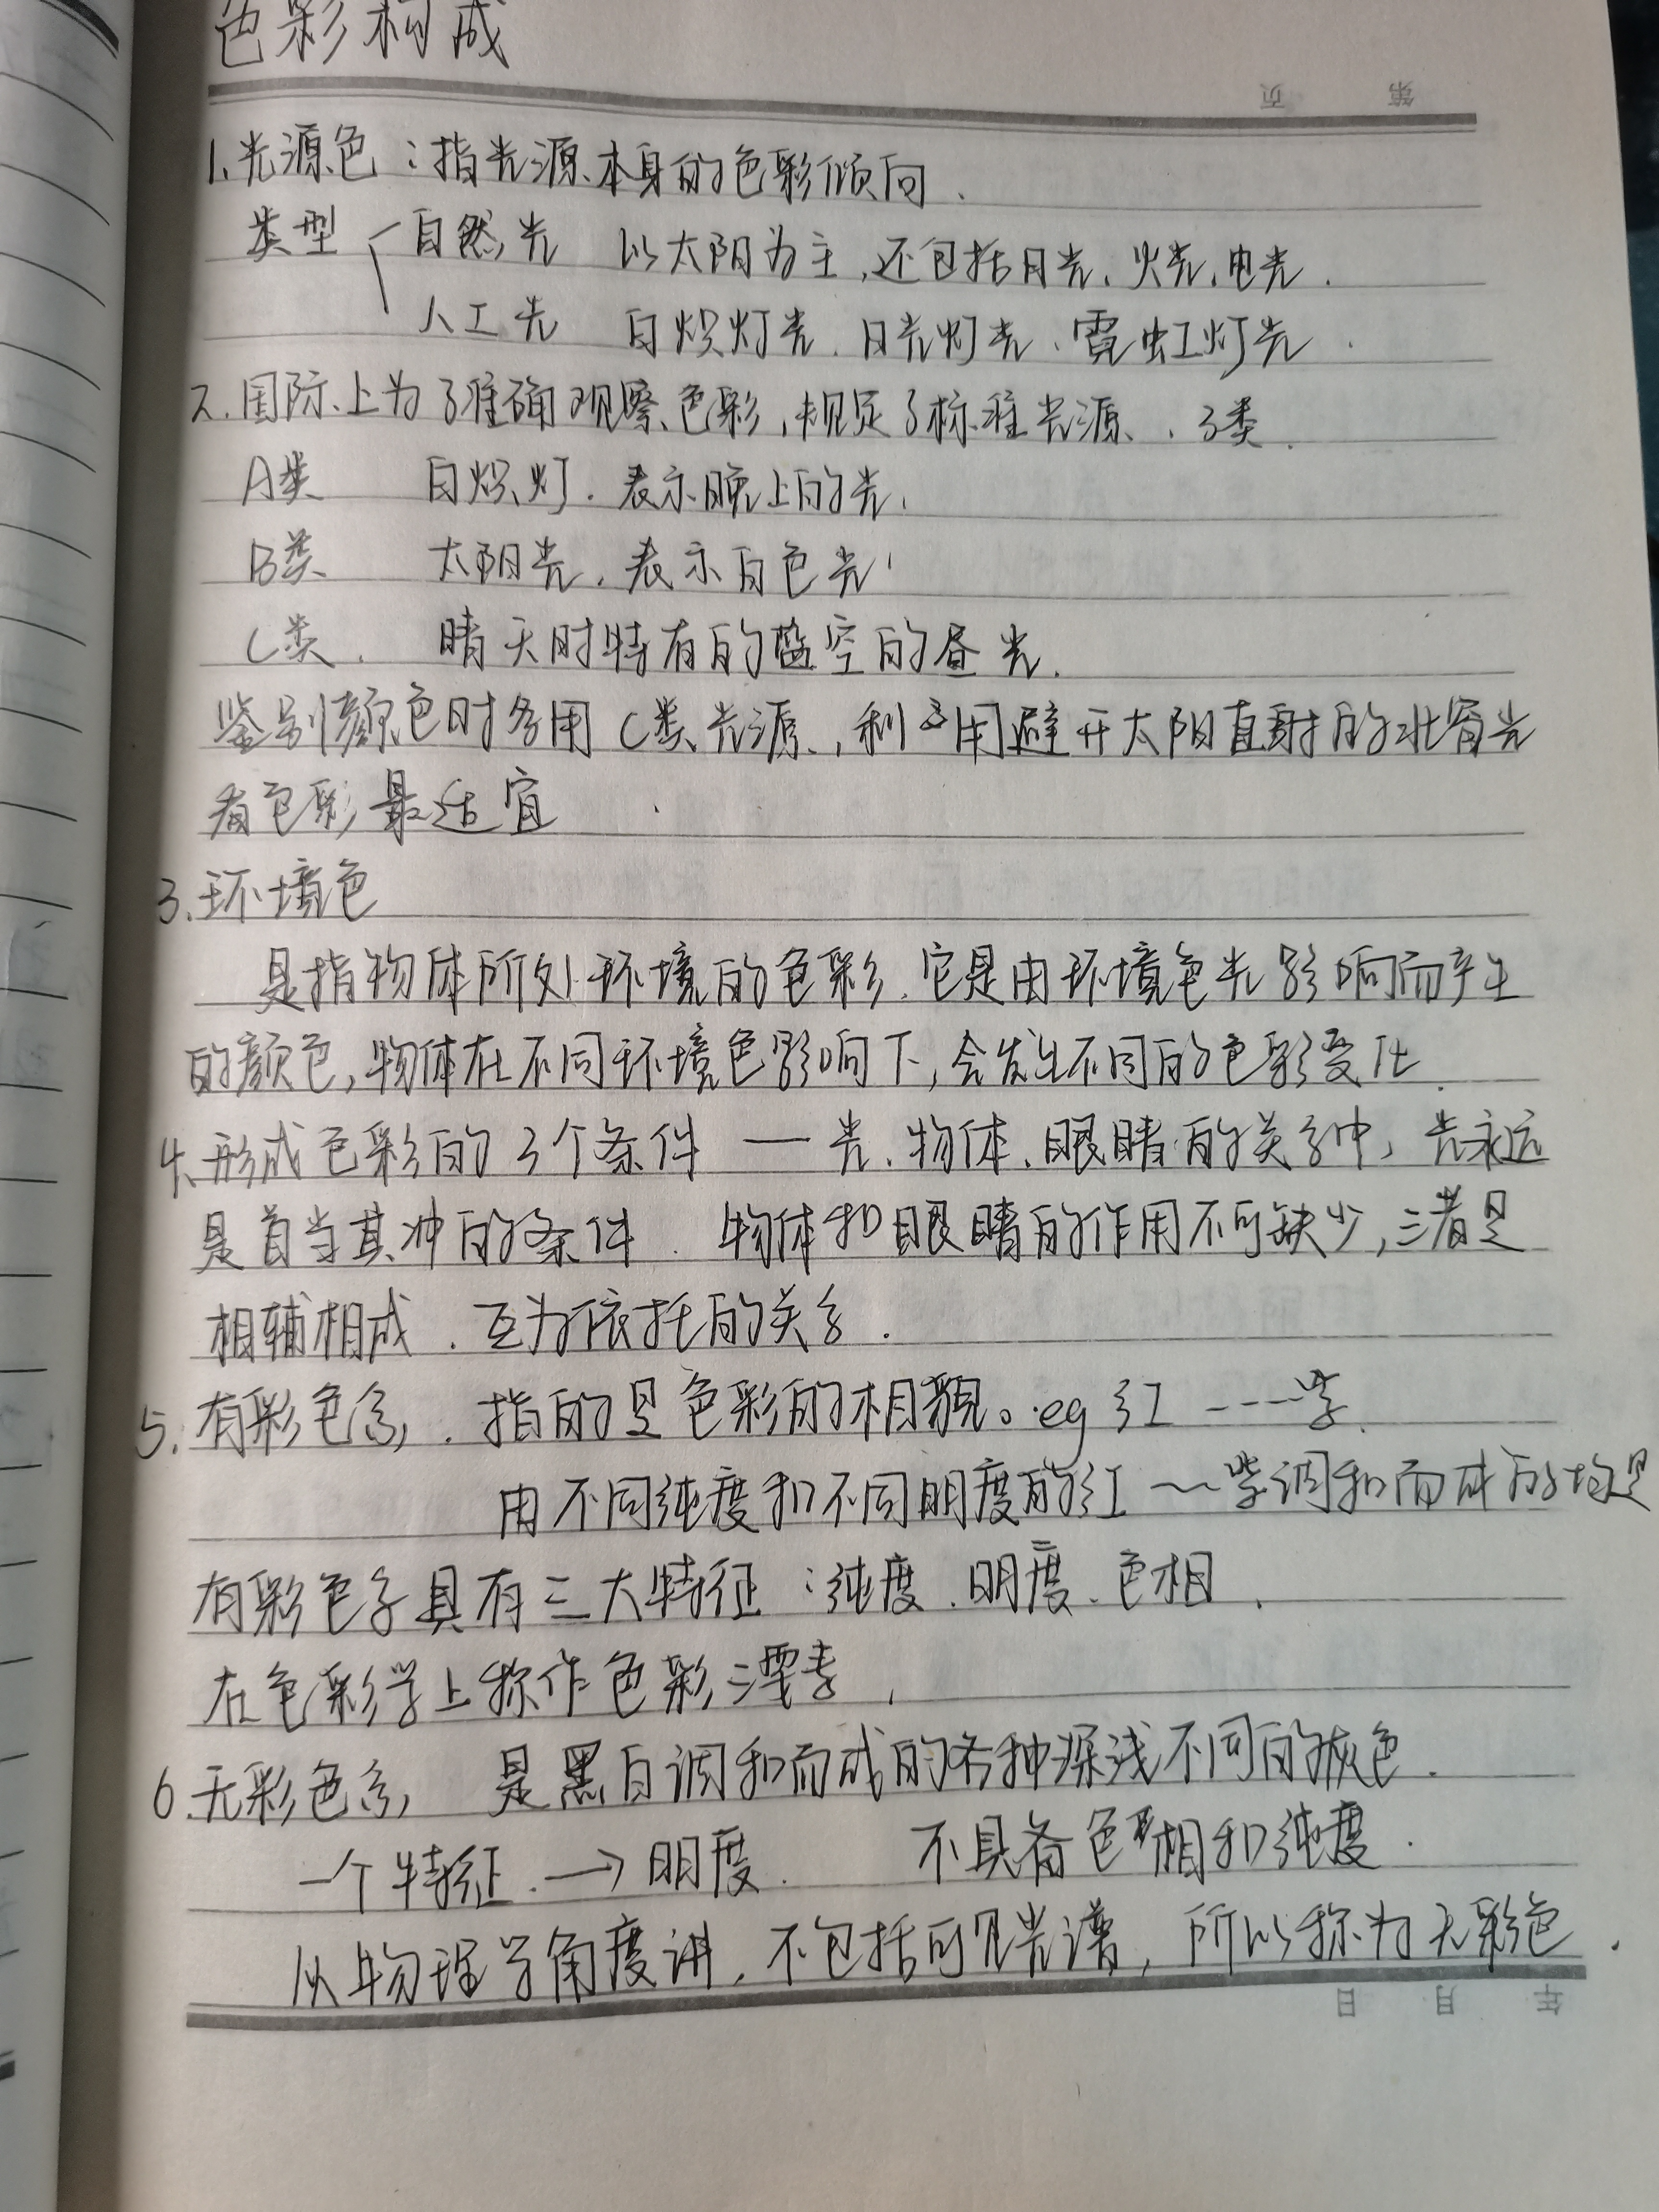 色彩构成
第 页
1.光源色：指光源本身的色彩倾向.
类型 自然光 以太阳为主,还包括月光、火光、电光.
人工光 白炽灯光、日光灯光、霓虹灯光.
2.国际上为了准确观察色彩,规定了标准光源、3类.
A类 白炽灯.表示晚上的光.
B类 太阳光.表示白色光
C类. 晴天时特有的蓝空的昼光.
鉴别颜色时多用C类光源,利用避开太阳直射的北窗光
看色彩最适宜
3.环境色
是指物体所处环境的色彩.它是由环境色光影响而产生
的颜色,物体在不同环境色影响下,会发生不同的色彩变化.
4.形成色彩的3个条件 — 光.物体.眼睛的关系中,光永远
是首当其冲的条件.物体和眼睛的作用不可缺少,三者是
相辅相成.互为依托的关系.
5.有彩色系.指的是色彩的相貌。eg红----紫
用不同纯度和不同明度的红~~紫调和而成的均是
有彩色系具有三大特征：纯度.明度.色相.
在色彩学上称作色彩三要素,
6.无彩色系 是黑白调和而成的各种深浅不同的灰色.
一个特征.→明度. 不具备色相和纯度.
从物理学角度讲,不包括可见光谱,所以称为无彩色.
年 月 日